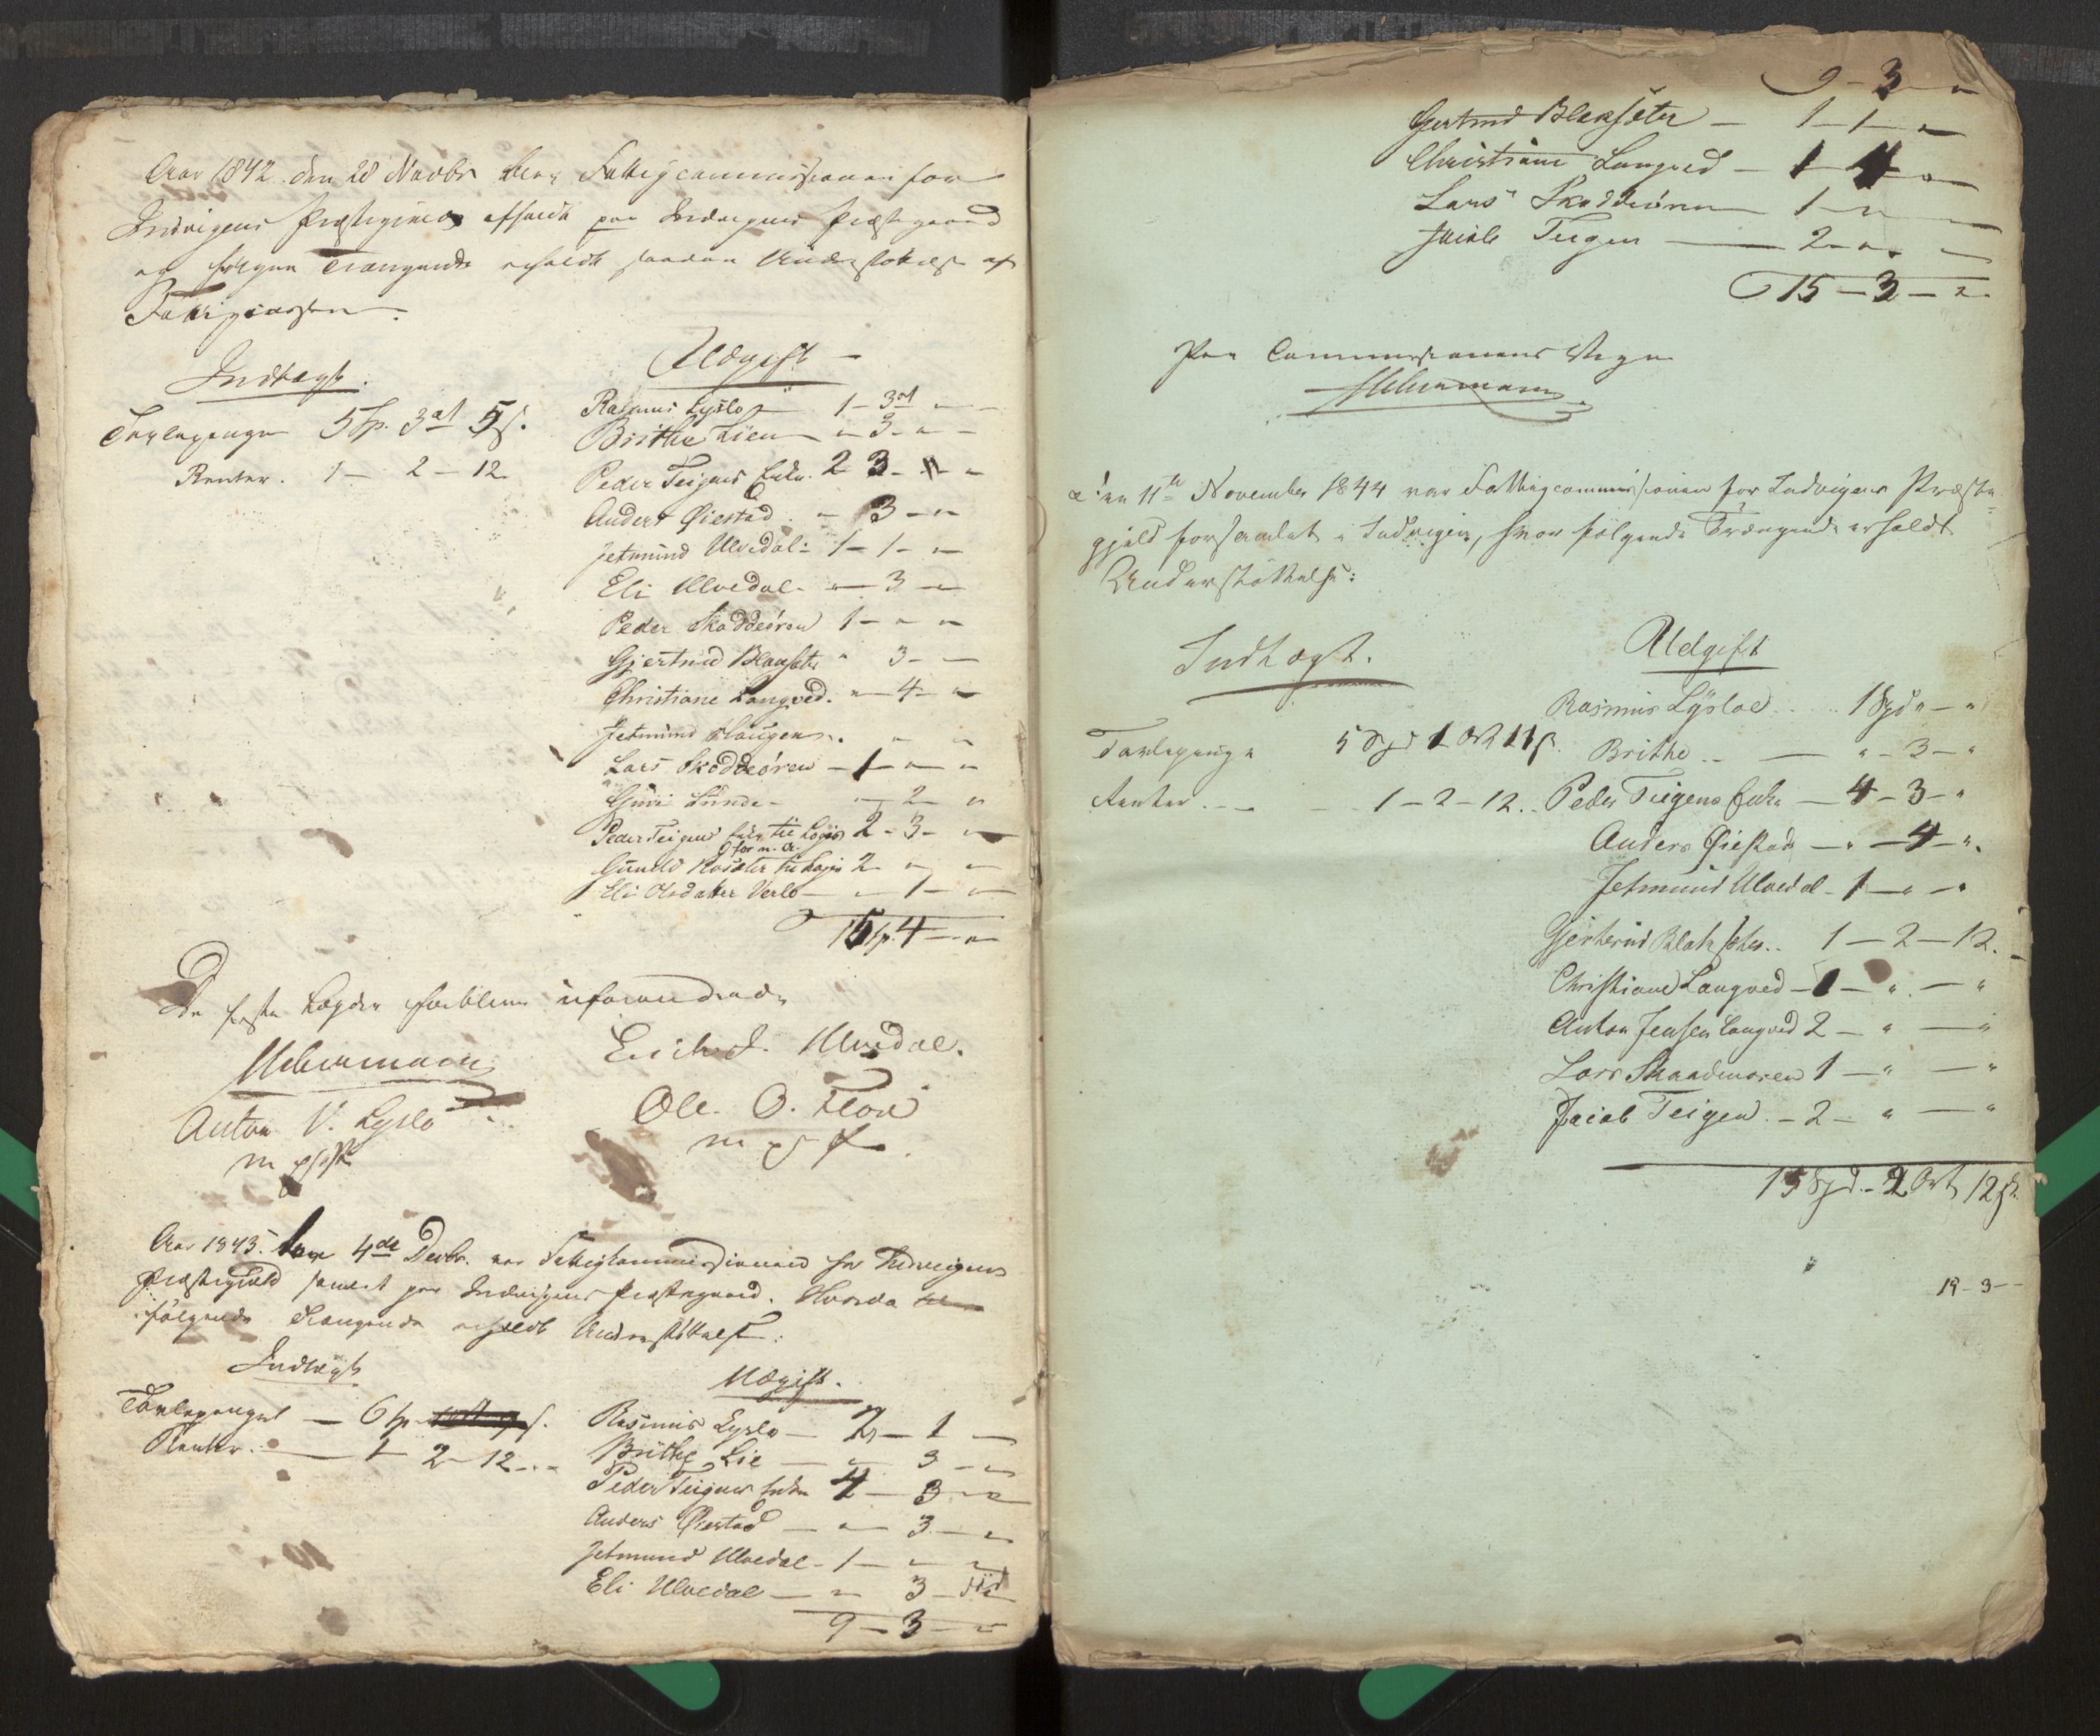 Aar 1842 den 28 Novbr blev Fattigcommissionen for
Indvigens Præstegield afholdt paa Indvigens Præstegaard
og følgende Trængende erholdt saadan Understøttelse af
Fattigcassen.
Indtægt.
Tavlepenge 5 Sp. 3 ort 5 s.
Renter. 1 — 2 — 12
Udgift —
Rasmus Lyslo — 1 — 3 ort "
Brithe Lien — " 3 - " -
Peder Teigens Enke. 2 3 - " -
Anders Øiestad. - 3 - "
Jetmund Ulvedal - 1 - 1 - "
Eli Ulvedal - " - 3 - "
Peder Skoddeøren 1 - " "
Gjertrud Blaksæter " 3 - -
Christiane Langved. " - 4 - "
Jetmund Haugen. " "
Lars Skoddeøren - 1 - " - "
Guri Lunde - " - 2 - "
Peder Teigens Enke til Logis 2 - 3 - "
for n. A.
Gunild Roset til Logis 2 - " -
Eli Verlo - " - 1 - "
15 Sp. 4 - "
De faste Lægder forblive uforandrede
Anton V. Lyslo
Erich J. Ulvedal.
Ole. O. Floe
Aar 1843. den 4de Decbr. var Fattigkommissionen for Indvigens
Præstegield samlet paa Indvigens Præstegaard. Hvorda
følgende Trængende erholdt Understøttelse:
Indtægt
Tavlepenge — 6 Sp.
Renter. — 1 2 - 12 - -
Udgift.
Rasmus Lyslo — 2 — 1 —
Brithe Lie — " 3 - "
Peder Teigens Enke 4 - 3 - "
Anders Øiestad — " — 3 — "
Jetmund Ulvedal - 1 - " "
Eli Ulvedal — " 3
9 - 3 - "
9 - 3 - "
Gertrud Blaksæter — 1 - 1 - "
Christiane Langved — 1 - 4 - "
Lars Skoddeøren 1 - " -
Jacob Teigen — 2 - " -
15 - 3 - "
Paa Commissionens Vegne
Den 11te November 1844 var Fattigcommissionen for Indvigens Præste-
gjeld forsamlet i Indvigen, hvor følgende Trængende erholdt
Understøttelse:
Indtægt.
Tavlepenge 5 Spd 1 Ort 11 s.
Renter. - - 1 - 2 - 12.
Udgift
Rasmus Lysloe .... 1 Spd " - "
Brithe .. — " - 3 - "
Peder Teigens Enke — 4 - 3 - "
Anders Øiestad — " — 4 - ".
Jetmund Ulvedal - 1 — " - "
Gjertrud Blaksæter .. 1 — 2 — 12.
Christiane Langved — 1 — " — "
Anton Jensen Langved 2 — " — "
Lars Skaadeøren 1 — " — "
Jacob Teigen. - 2 - " — "
15 Spd. - 2 Ort 12 s.
19 - 3 -